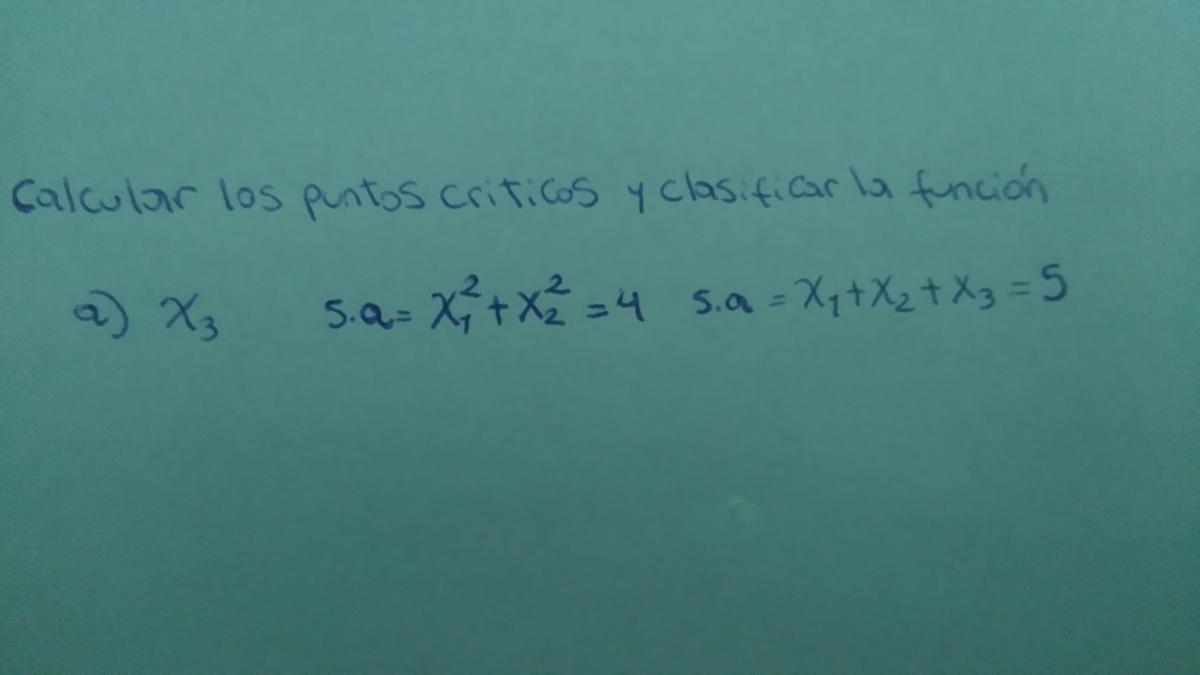 Calcular los puntos criticos y clasificar la función
a) X₃ s.a = X₁² + X₂² = 4 s.a = X₁ + X₂ + X₃ = 5